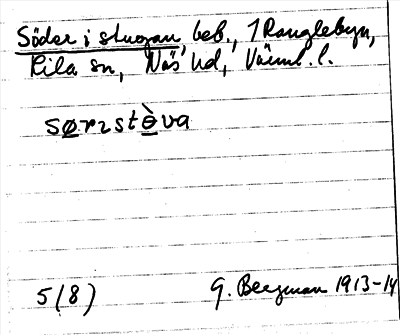 Söder i stugan, beb., 1 Ranglebyn,
Lila sn, Näs hd, Värml. l.
sørɿstèva
5(8) G. Bergman 1913-14